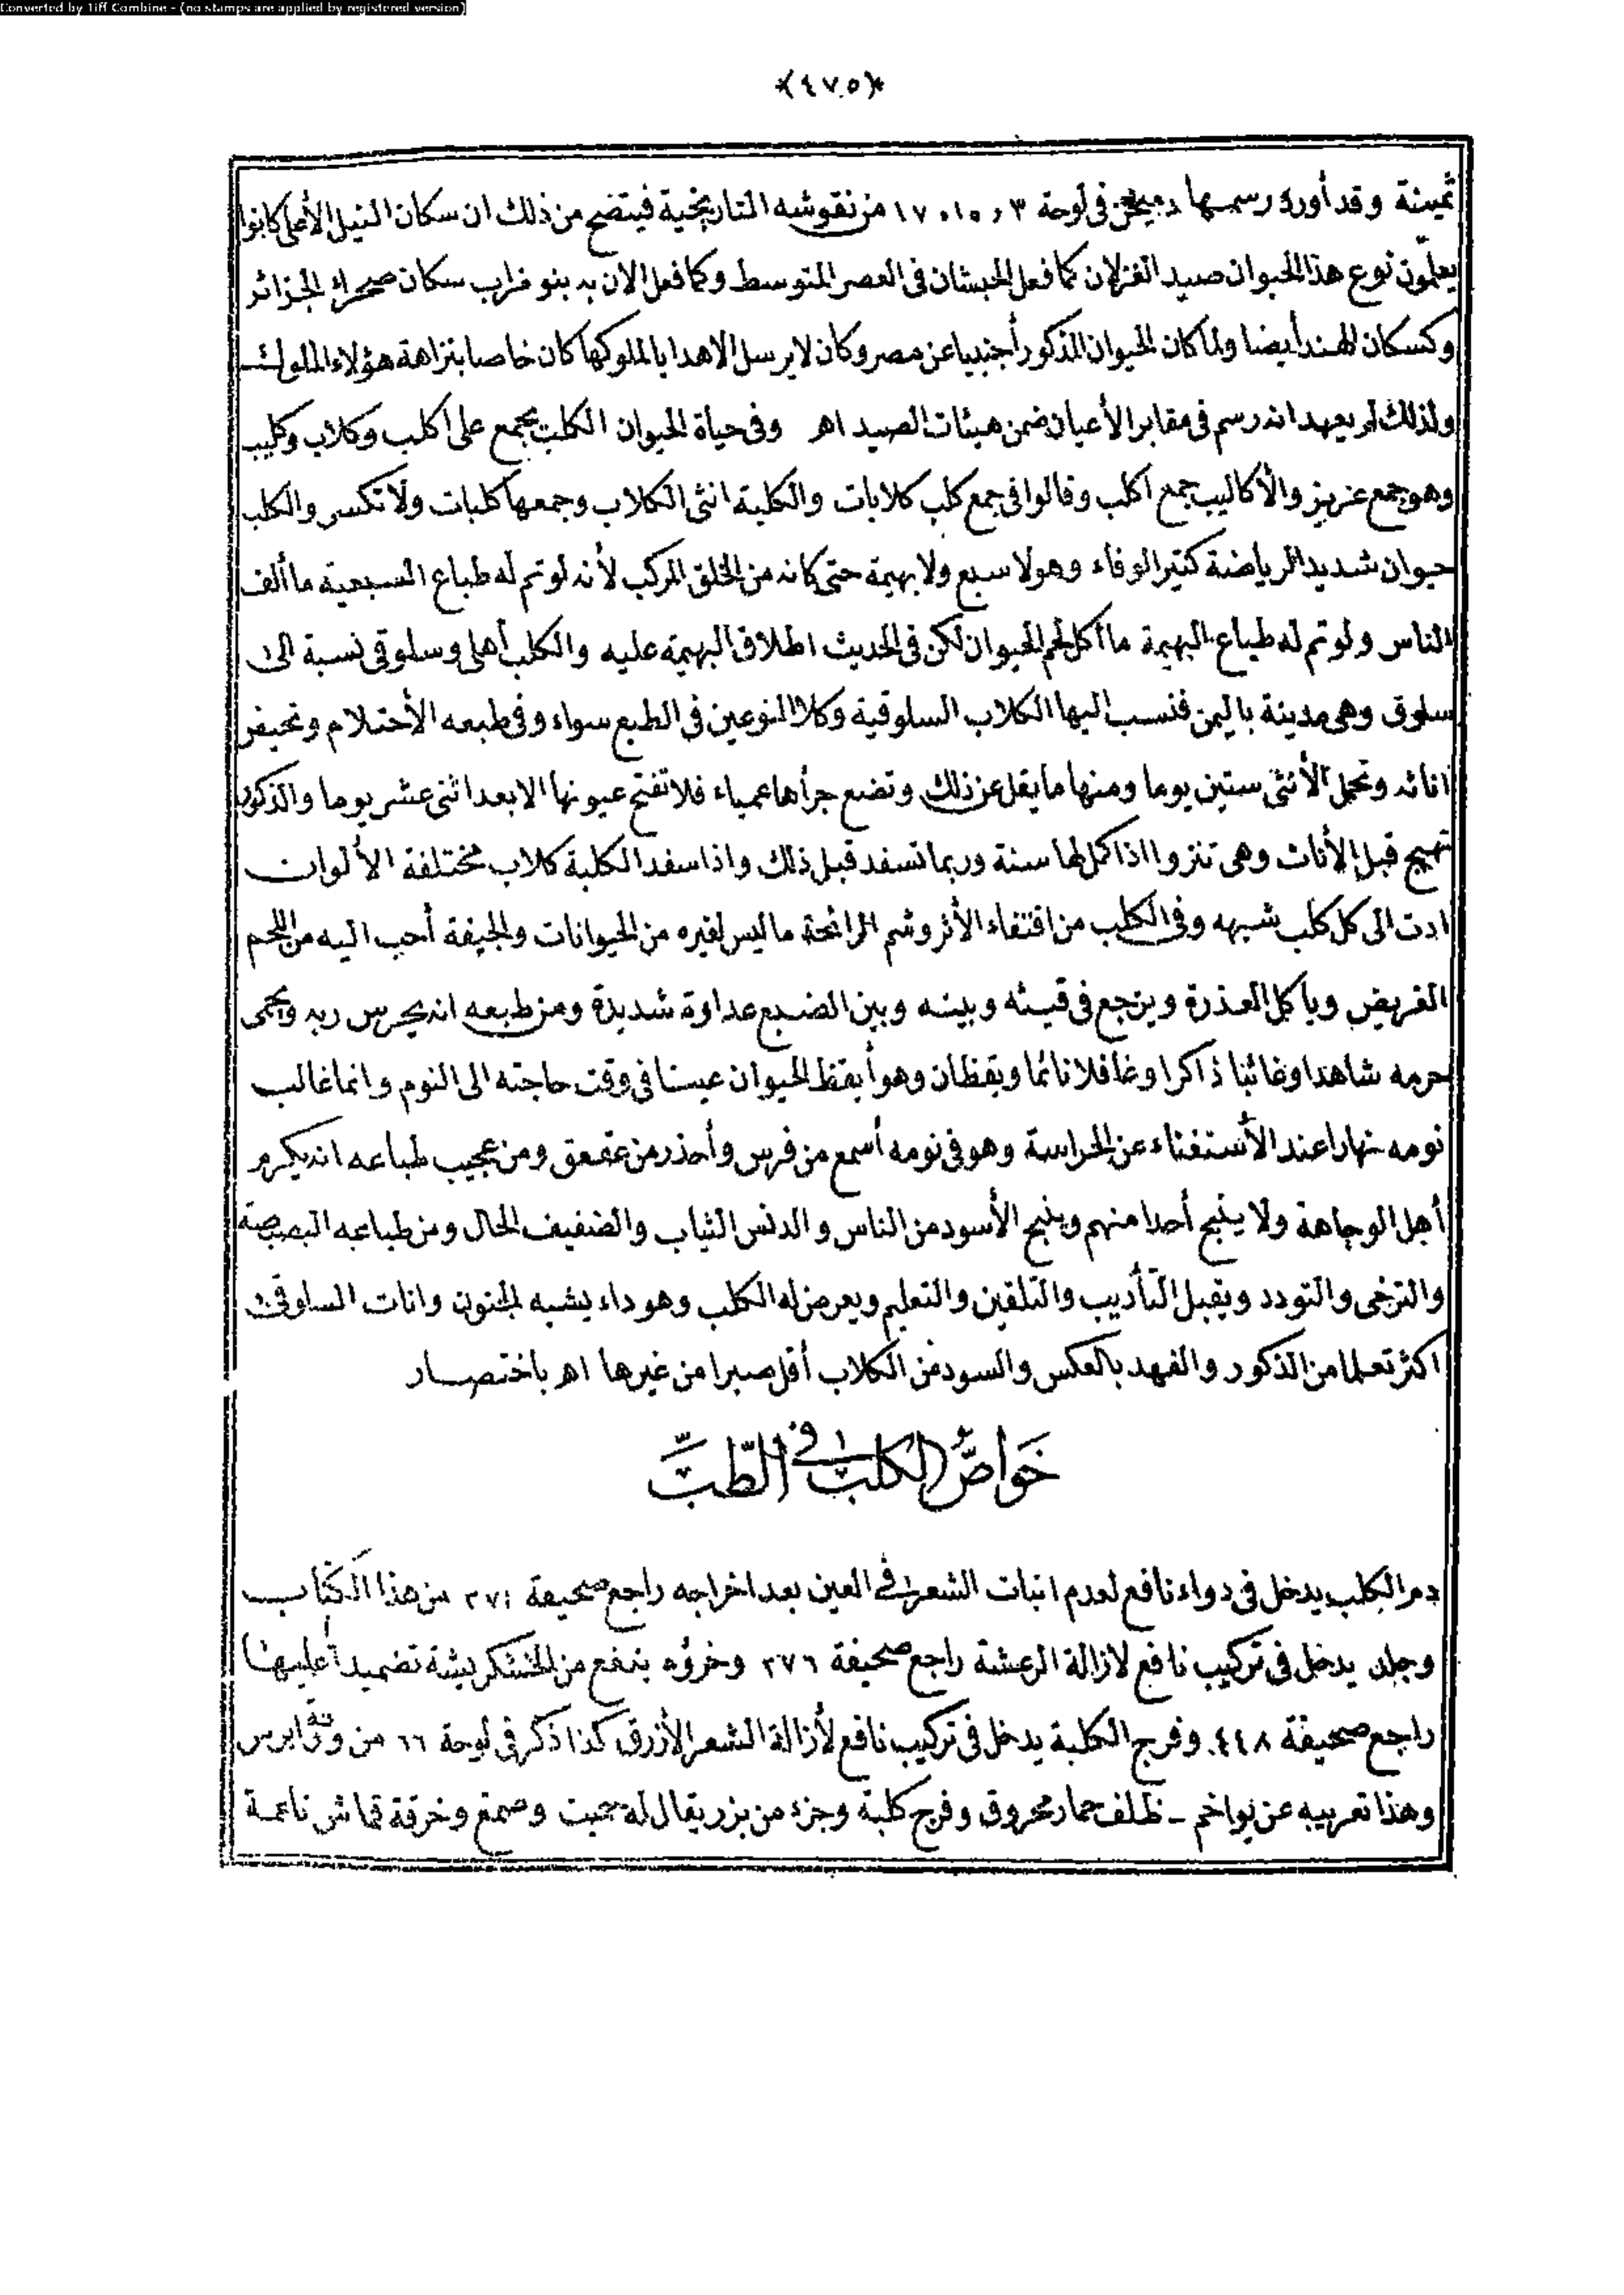 Converted by Tiff Combine - (no stamps are applied by registered version)
﴿٤٧٥﴾
ثمينة وقد أورد رسمها دميخن فى لوحة ٣ و ١٥ و ١٧ من نقوشه التاريخية فيتضح من ذلك ان سكان النيل الأعلى كانوا
يعلّمون نوع هذا الحيوان صيد الغزلان كما فعل الحبشان فى العصر المتوسط وكما فعل الان به بنو مزاب سكان صحراء الجزائر
وكسكان الهند أيضا ولما كان الحيوان المذكور أجنبيا عن مصر وكان لا يرسل الا هدايا لملوكها كان خاصا بنزاهة هؤلاء الملوك
ولذلك لم يعهد انه رسم فى مقابر الأعيان ضمن هيئات الصيد اهـ وفى حياة الحيوان الكلب يجمع على أكلب وكلاب وكليب
وهو جمع عزيز والأكاليب جمع اكلب وقالوا فى جمع كلب كلابات والكلبة انثى الكلاب وجمعها كلبات ولا تكسر والكلب
حيوان شديد الرياضة كثير الوفاء وهو لا سبع ولا بهيمة حتى كانه من الخلق المركب لأنه لو تم له طباع السبعية ما ألف
الناس ولو تم له طباع البهيمة ما أكل لحم الحيوان لكن فى الحديث اطلاق البهيمة عليه والكلب أهلى وسلوقى نسبة الى
سلوق وهى مدينة باليمن فنسب اليها الكلاب السلوقية وكلا النوعين فى الطبع سواء وفى طبعه الأحتلام وتحيض
اناثه وتحمل الأنثى ستين يوما ومنها ما يقل عن ذلك وتضع جرأها عمياء فلا تفتح عيونها الا بعد اثنى عشر يوما والذكور
تهيج قبل الأناث وهى تنزوا اذا كمل لها سنة وربما تسفد قبل ذلك واذا سفد الكلبة كلاب مختلفة الألوان
ادت الى كل كلب شبهه وفى الكلب من اقتفاء الأثر وشم الرائحة ما ليس لغيره من الحيوانات والجيفة أحب اليه من اللحم
الغريض وياكل العذرة ويرجع فى قيئه وبينه وبين الضبع عداوة شديدة ومن طبعه انه يحرس ربه ويحمى
حرمه شاهدا وغائبا ذاكرا وغافلا نائما ويقظان وهو أيقظ الحيوان عينا فى وقت حاجته الى النوم وانما غالب
نومه نهارا عند الأستغناء عن الحراسة وهو فى نومه أسمع من فرس وأحذر من عقعق ومن عجيب طباعه انه يكرم
أهل الوجاهة ولا ينبح أحدا منهم وينبح الأسود من الناس والدنس الثياب والضعيف الحال ومن طباعه البصبصة
والترضى والتودد ويقبل التأديب والتلقين والتعليم ويعرض له الكلب وهو داء يشبه الجنون واناث السلوقى
اكثر تعلما من الذكور والفهد بالعكس والسود من الكلاب أقل صبرا من غيرها اهـ باختصار
خَوَاصُّ الكلب فى الطّبّ
دم الكلب يدخل فى دواء نافع لعدم انبات الشعر فى العين بعد اخراجه راجع صحيفة ٣٧١ من هذا الكتاب
وجلده يدخل فى تركيب نافع لازالة الرعشة راجع صحيفة ٣٧٦ وخرؤه ينفع من الخشكريشة تضميدا عليها
راجع صحيفة ٤٤٨ وفرج الكلبة يدخل فى تركيب نافع لأزالة الشعر الأزرق كذا ذكر فى لوحة ٦٦ من ورقة ابرس
وهذا تعريبه عن يواخم ـ ظلف حمار محروق وفرج كلبة وجزء من بزر يقال له حبت وصمغ وخرقة قماش ناعمة